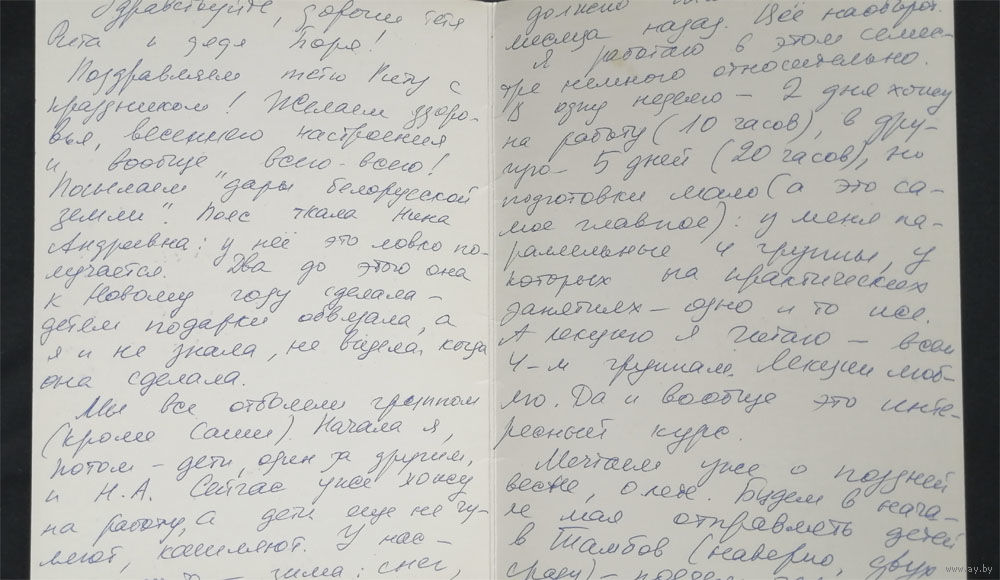 Здравствуйте, дорогие тётя
Рита и дядя Боря!
Поздравляем тётю Риту с
праздником! Желаем здоро-
вья, весеннего настроения
и вообще всего-всего!
Посылаем "дары белорусской
земли". Пояс ткала Нина
Андреевна: у неё это ловко по-
лучается. Два до этого она
к Новому году сделала –
детям подарки обвязала, а
я и не знала, не видела, когда
она сделала.
Мы все отболели гриппом
(кроме Саши). Начала я,
потом – дети, один за другим,
и Н.А. Сейчас уже хожу
на работу, а дети еще не гу-
ляют, кашляют. У нас –
зима: снег,
должно
месяца назад. Всё наоборот.
Я работаю в этом семес-
тре немного относительно.
В одну неделю – 2 дня хожу
на работу (10 часов), в дру-
гую – 5 дней (20 часов), но
подготовки мало (а это са-
мое главное): у меня па-
раллельные 4 группы, у
которых на практических
занятиях – одно и то же.
А лекцию я читаю – всем
4-м группам. Лекции люб-
лю. Да и вообще это инте-
ресный курс.
Мечтаем уже о поздней
весне, о лете. Будем в нача-
ле мая отправлять детей
в Тамбов (наверно, двух
сразу) –
www.ay.by